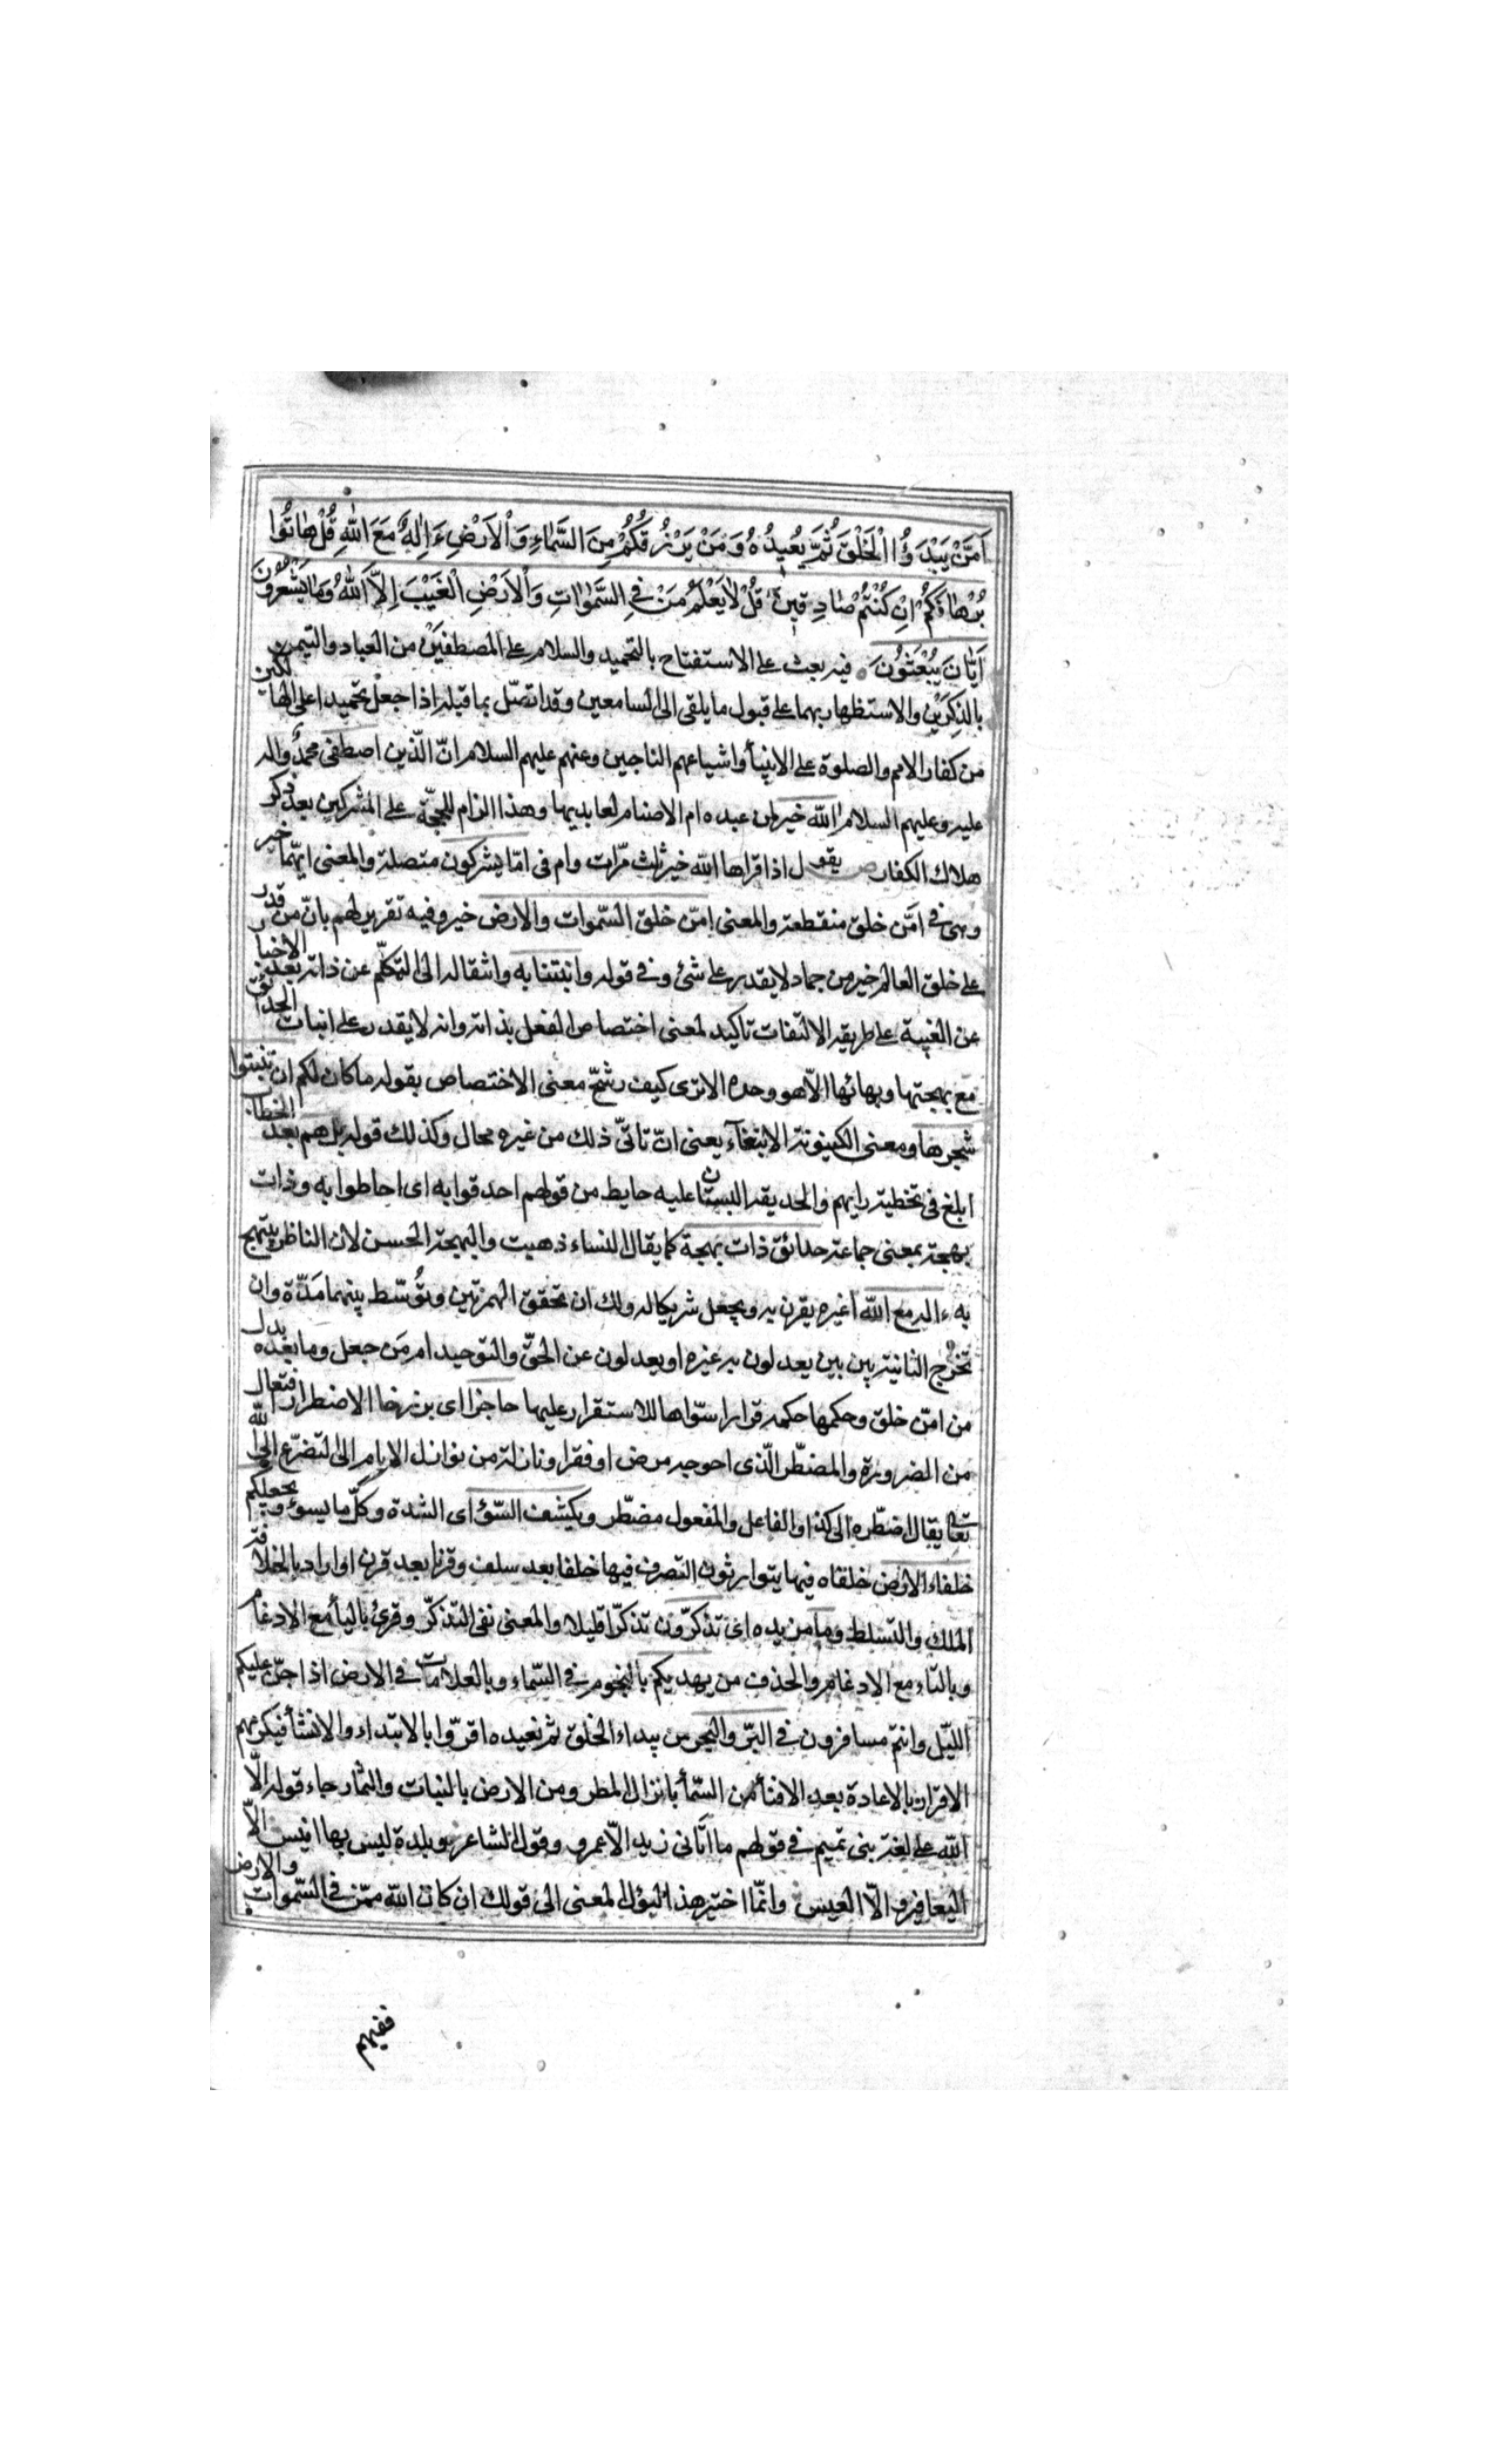 اَمَّنْ يَبْدَؤُا الْخَلْقَ ثُمَّ يُعِيدُهُ وَمَنْ يَرْزُقُكُمْ مِنَ السَّمَاءِ وَالْاَرْضِ ءَاِلٰهٌ مَعَ اللّٰهِ قُلْ هَاتُوا
بُرْهَانَكُمْ اِنْ كُنْتُمْ صَادِقِينَ قُلْ لَا يَعْلَمُ مَنْ فِي السَّمٰوَاتِ وَالْاَرْضِ الْغَيْبَ اِلَّا اللّٰهُ وَمَا يَشْعُرُونَ
اَيَّانَ يُبْعَثُونَ فيه بعث على الاستفتاح بالتحميد والسلام على المصطفَيْن من العباد والتيمن
بالذِكرَيْن والاستظهار بهما على قبول ما يلقى الى السامعين وقد اتصّل بما قبله اذا جعل تحميدا على الهالكين
من كفار الامم والصلوة على الانبيأ واشياعهم الناجين وعنهم عليهم السلام انّ الّذين اصطفى محمدٌ واله
عليه وعليهم السلام اللّه خير لمن عبده ام الاصنام لعابديها وهذا الزام للحجّة على المشركين بعد ذكر
هلاك الكفار ص يقول اذا قراها اللّه خير ثلث مرّات وام فى امّا يشركون متصلة والمعنى ايّهما خير
وهى فى امَّن خلق منقطعة والمعنى امّن خلق السّموات والارض خير وفيه تقرير لهم بانّ من قدر
على خلق العالم خير من جماد لا يقدر على شئ وفى قوله وانبتنا به وانتقاله الى التكلّم عن ذاته بعد الاخبار
عن الغيبة على طريقه الالتفات تاكيد لمعنى اختصاص الفعل بذاته وانه لا يقدر على انبات الحدائق
مع بهجتها وبهائها الاّ هو وحده الا ترى كيف رشّح معنى الاختصاص بقوله ما كان لكم ان تنبتوا
شجرها ومعنى الكينونة الابتغآء يعنى انّ تاتّى ذلك من غيره محال وكذلك قوله بل هم بعد الخطاب
ابلغ فى تخطية رايهم والحديقة البستان عليه حايط من قولهم احدقوا به اى احاطوا به وذات
بهجة بمعنى جماعة حدائق ذات بهجة كما يقال النساء ذهبت والبهجة الحسن لان الناظر يبتهج
به ءاله مع اللّه اغيره يقرن به ويجعل شريكا له ولك ان تحقق الهمزتين وتُوسّط بينهما مَدّة وان
تخرج الثانية بين بين يعدلون به غيره او يعدلون عن الحقّ والتوحيد ام مَن جعل وما بعده بدل
من امّن خلق وحكمها حكمه قرارا سوّاها للاستقرار عليها حاجزا اى برزخا الاضطرار افتعال
من الضرورة والمضطّر الّذى احوجه مرض او فقر او نازلة من نوازل الايام الى التضرّع الى اللّه
تعالى يقال اضطّره الى كذا والفاعل والمفعول مضطّر ويكشف السّوٓء اى الشدة وكلّ ما يسوء ويجعلكم
خلفاء الارض خلفاه فيها يتوارثون التصرف فيها خلفا بعد سلف وقرنا بعد قرن او اراد بالخلافة
الملك والتسلط وما مزيده اى تذكرّون تذكّرا قليلا والمعنى نفى التذكّر وقرئ باليأ مع الادغام
وبالتاء مع الادغام والحذف من يهديكم بالنجوم فى السّماء وبالعلامات فى الارض اذا جنّ عليكم
اللّيل وانتم مسافرون فى البّر والبحر من يبداء الخلق ثم نعيده اقرّوا بالابتداء والانشأ فيكزمهم
الاقرار بالاعادة بعد الافنأ من السّمأ بانزال المطر ومن الارض بالنبات والثمار جاء قوله الّا
اللّه على لغة بنى تميم فى قولهم ما اتانى زيد الاّ عمرو وقول الشاعر وبلدة ليس بها انيس الاّ
اليعافير والاّ العيس وانّما اختير هذا ليؤل المعنى الى قولك ان كان اللّه ممّن فى السّموات والارض
ففيهم